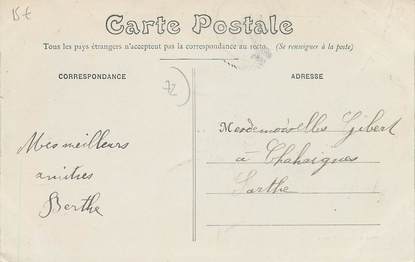 15€
Carte Postale
Tous les pays étrangers n'acceptent pas la correspondance au recto. (Se renseigner à la poste)
CORRESPONDANCE
ADRESSE
72
Mes meilleurs
amitiés
Berthe
Mesdemoiselles Gibert
à Chahaignes
Sarthe